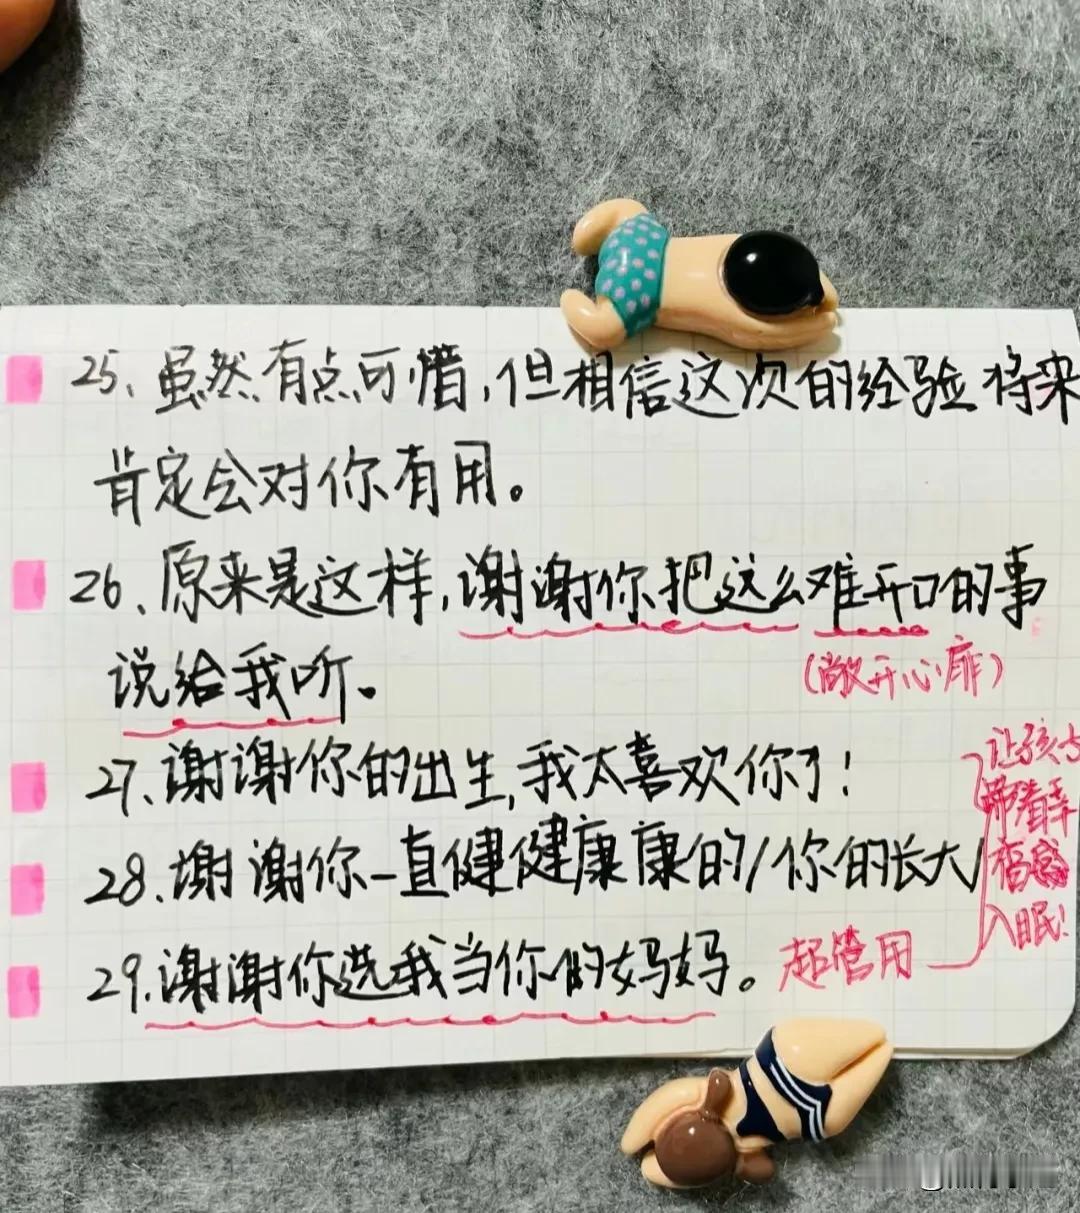 25、虽然有点可惜,但相信这次的经验将来
肯定会对你有用。
26、原来是这样,谢谢你把这么难开口的事
说给我听。
(敞开心扉)
27、谢谢你的出生,我太喜欢你了!
28、谢谢你一直健健康康的/你的长大
29、谢谢你选我当你的妈妈。
超管用
让孩子
带着幸
福感
入眠!